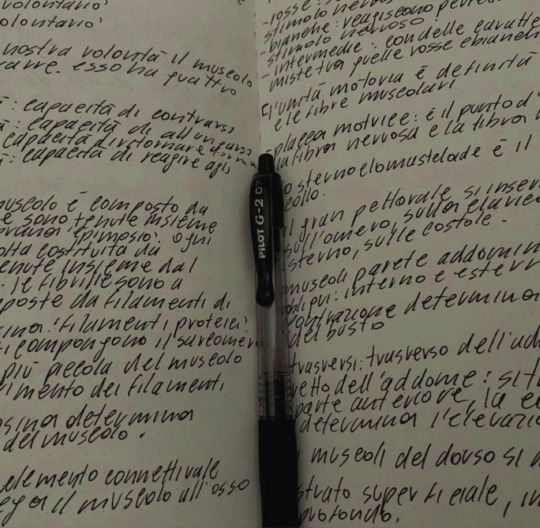 volontario
olontario
nostra volontà il muscolo
carre. esso ha quattro
: capacità di contrarsi
: capacità di allungarsi
capacità di ritornare
: capacità di reagire agli
muscolo è composto da
e sono tenute insieme
epimisio. ogni
costituita da
tenute insieme dal
. le fibrille sono a
poste da filamenti di
filamenti proteici
si compongono il sarcomero
più piccola del muscolo
rimento dei filamenti
sina determina
del muscolo.
elemento connettivale
ega il muscolo all'osso
PILOT G-2 07
-rosse:
stimolo nervoso
-bianche: reagiscono
stimolo nervoso
-intermedie: con delle caratte
miste tra quelle rosse e bianche
L'unità motoria è definita
e le fibre muscolari
placca motrice: è il punto d
la fibra nervosa e la fibra
o sternocleomastelade è il
collo.
il gran pettorale si inser
sull'omero, sulla clavic
sterno, sulle costole.
muscoli parete addomin
obliqui: interno e estern
contrazione determina
del busto
trasversi: trasverso dell'ad
retto dell'addome: si t
parte anteriore, la
determina l'elevazio
muscoli del dorso si
strato superficiale, in
profondo.